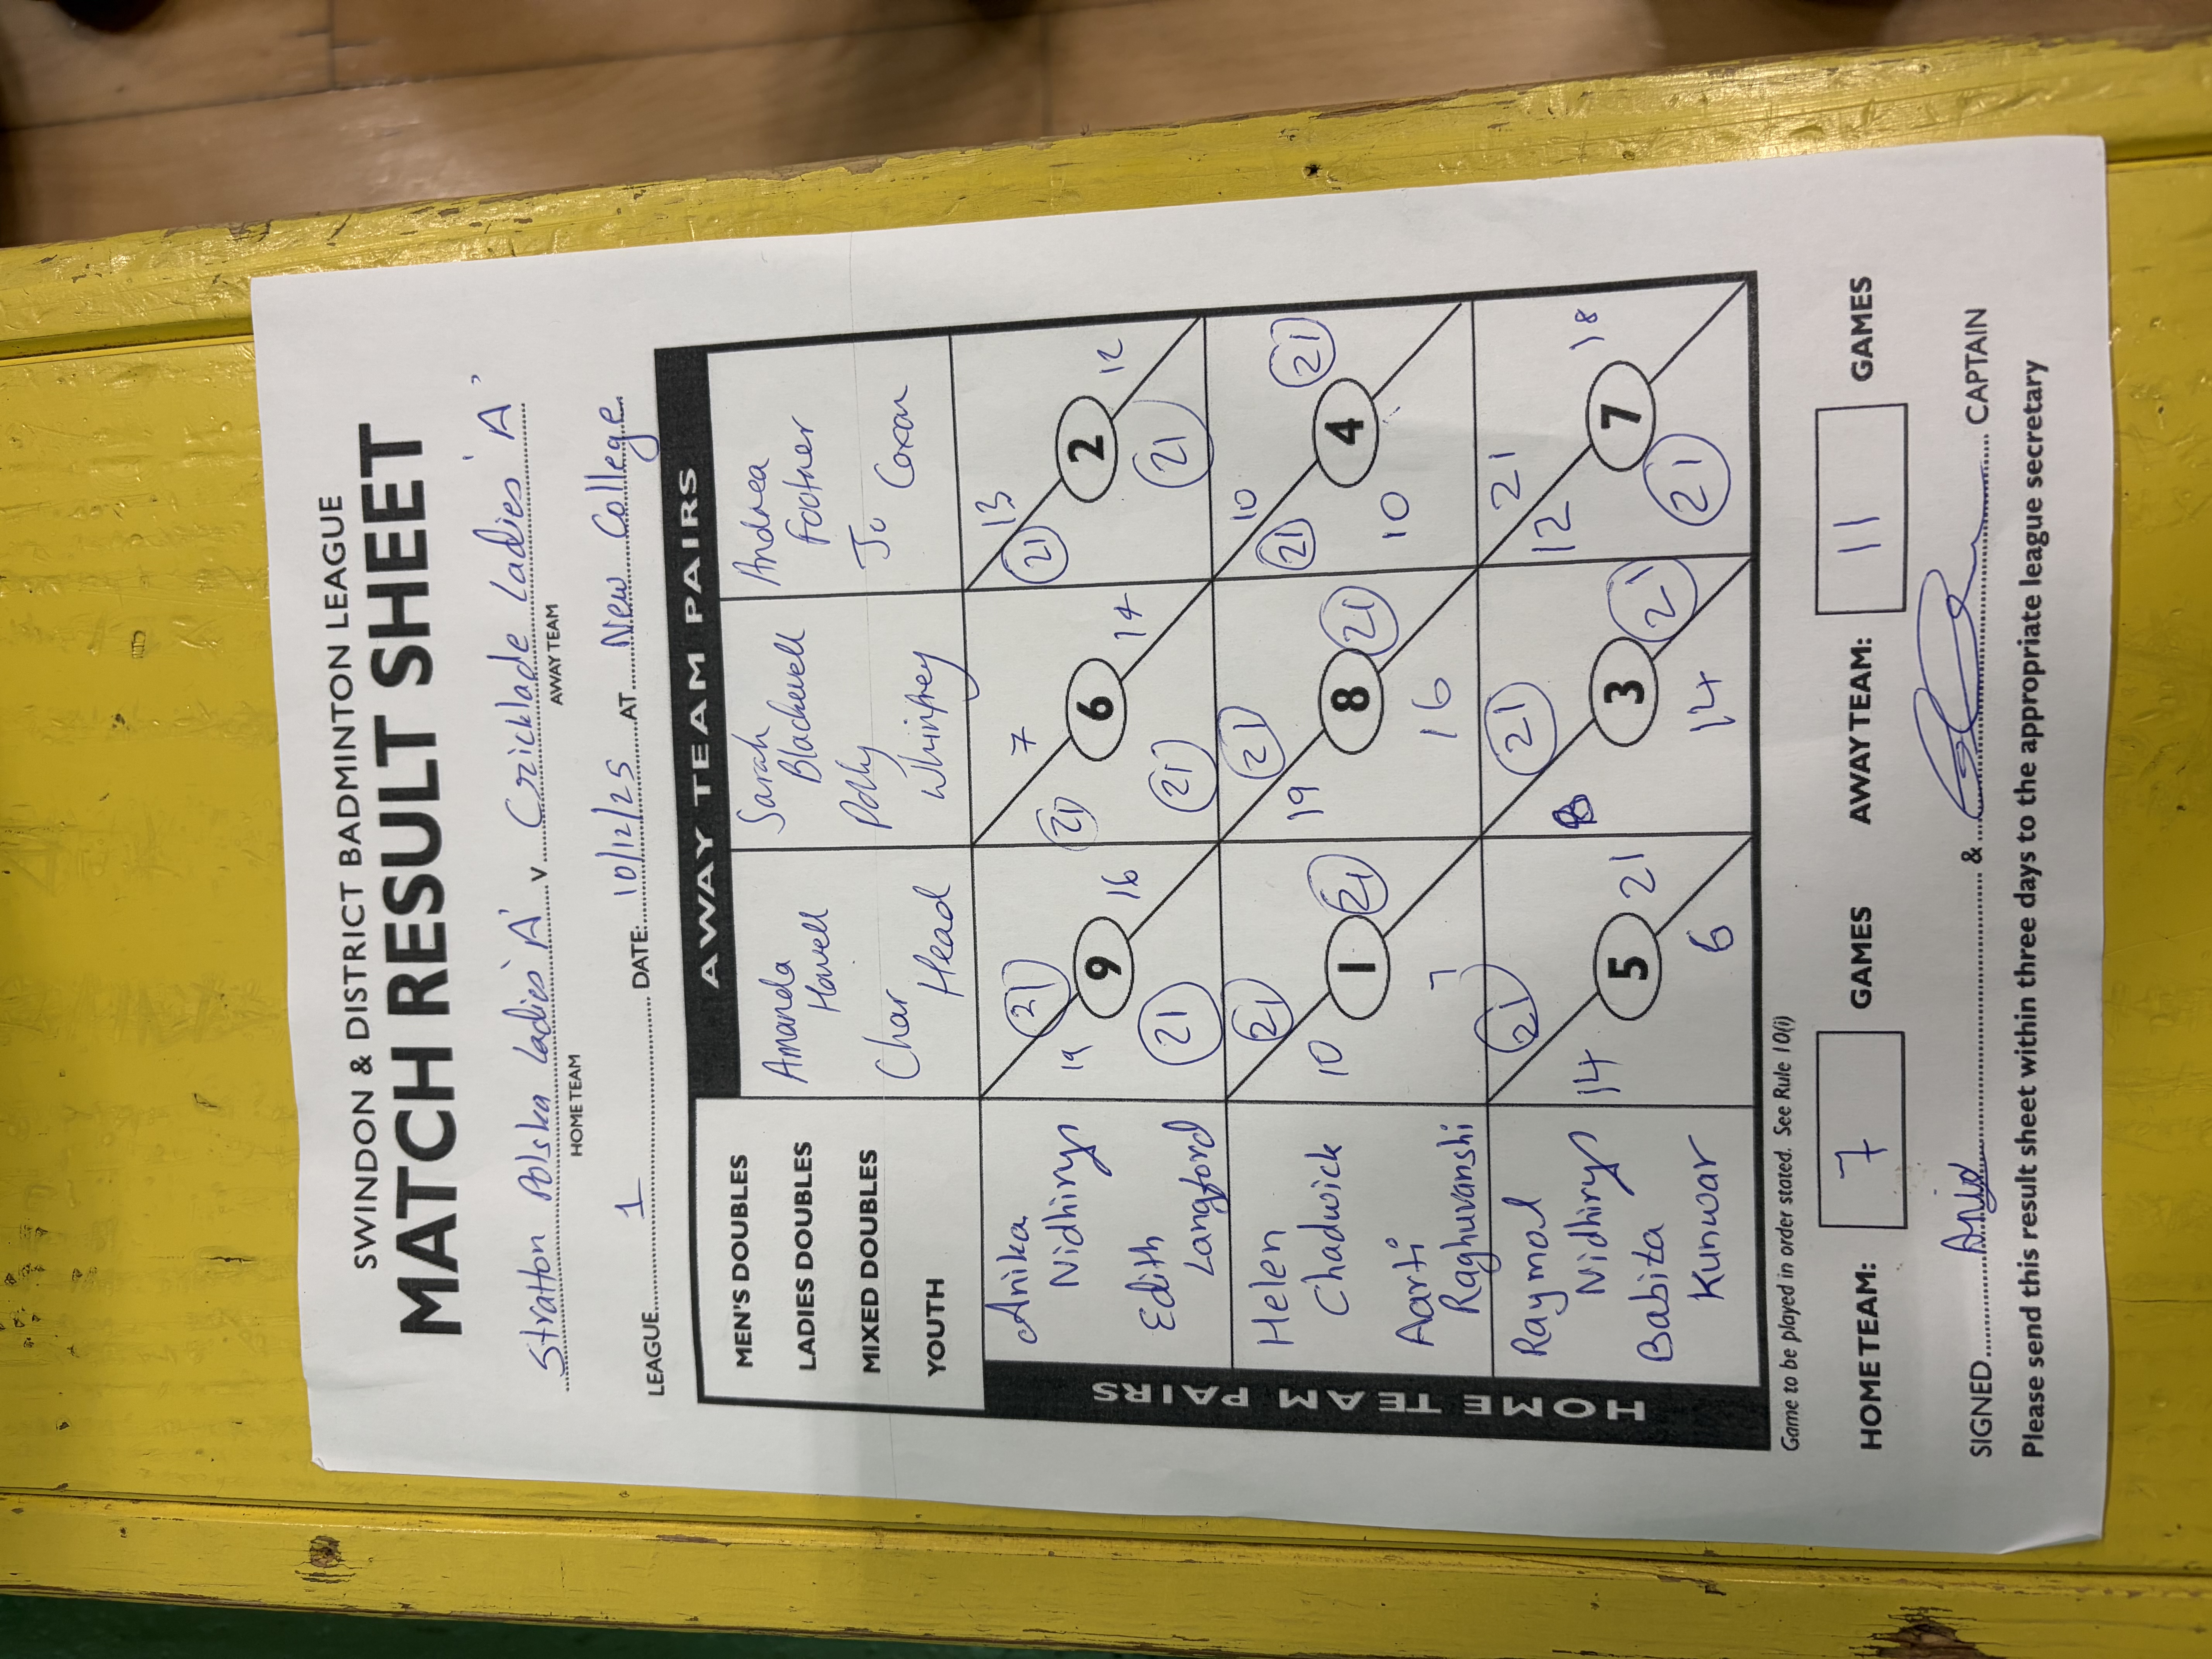 SWINDON & DISTRICT BADMINTON LEAGUE
MATCH RESULT SHEET
Stratton Polska Ladies 'A' v Cricklade Ladies 'A'
HOME TEAM AWAY TEAM
LEAGUE 1 DATE: 10/12/25 AT New College
AWAY TEAM PAIRS
MEN'S DOUBLES
LADIES DOUBLES
MIXED DOUBLES
YOUTH
Amanda
Howell
Char
Head
Sarah
Blackwell
Polly
Whinfrey
Andrea
Footner
Jo
Coxon
HOME TEAM PAIRS
Anika
Nidhiry
Edith
Langford
19 21 9 21 16
21 7 6 21 14
21 13 2 21 12
Helen
Chadwick
Aarti
Raghuvanshi
10 21 1 7 21
19 21 8 16 21
21 10 4 10 21
Raymol
Nidhiry
Babita
Kunwar
14 21 5 6 21
21 3 14 21
12 21 7 21 18
Game to be played in order stated. See Rule 10(i)
HOME TEAM: 7 GAMES AWAY TEAM: 11 GAMES
SIGNED & CAPTAIN
Please send this result sheet within three days to the appropriate league secretary